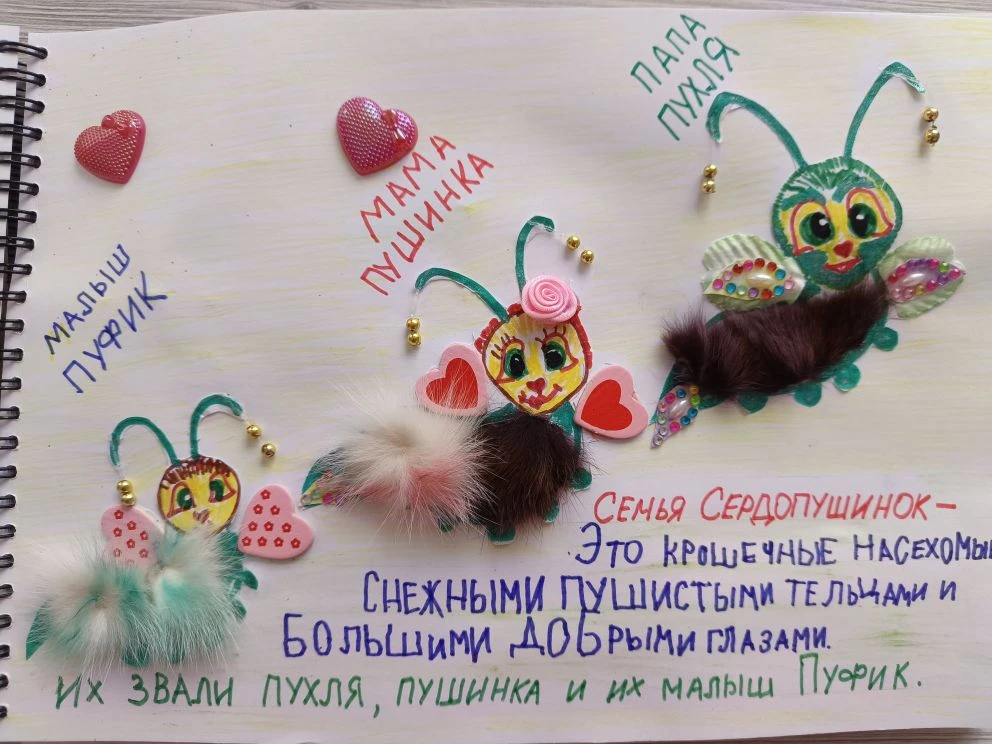 ПАПА
ПУХЛЯ
МАМА
ПУШИНКА
МАЛЫШ
ПУФИК
СЕМЬЯ СЕРДОПУШИНОК –
ЭТО КРОШЕЧНЫЕ НАСЕКОМЫ
СНЕЖНЫМИ ПУШИСТЫМИ ТЕЛЬЦАМИ И
БОЛЬШИМИ ДОБРЫМИ ГЛАЗАМИ.
ИХ ЗВАЛИ ПУХЛЯ, ПУШИНКА И ИХ МАЛЫШ ПУФИК.